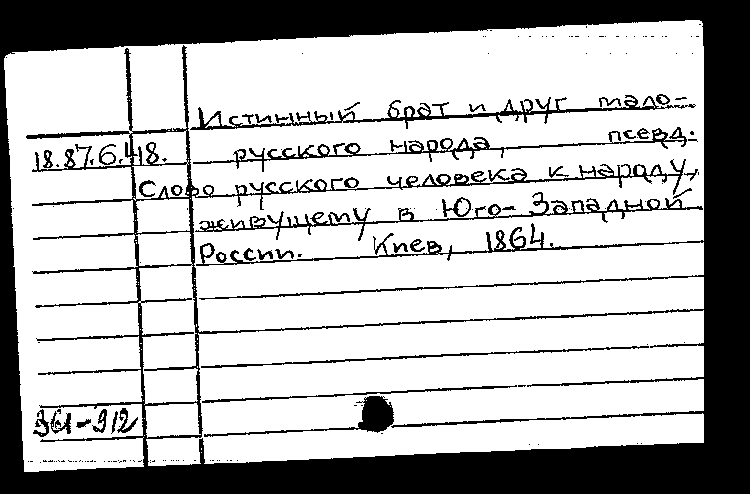 Истинный брат и друг мало-
18.87.6.418. русского народа, псевд.
Слово русского человека к народу,
живущему в Юго-Западной
России. Киев, 1864.
361-912